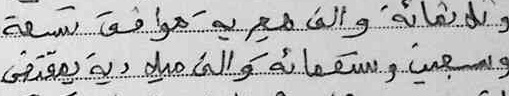 وثلاثمائة والف هجرية موافق تسعة
وسبعين وتسعمائة والف ميلادية بمقتضى